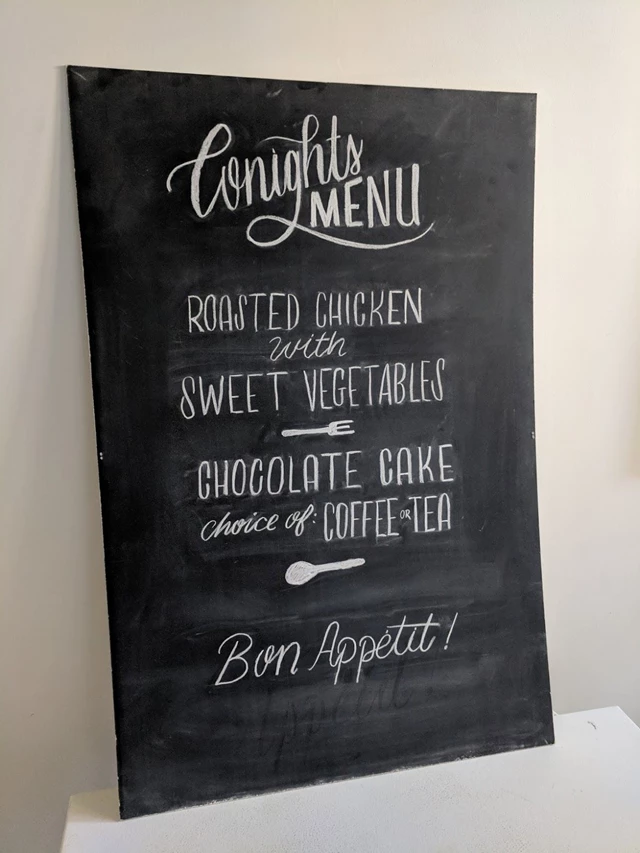 Tonights
MENU
ROASTED CHICKEN
with
SWEET VEGETABLES
CHOCOLATE CAKE
choice of: COFFEE OR TEA
Bon Appétit!